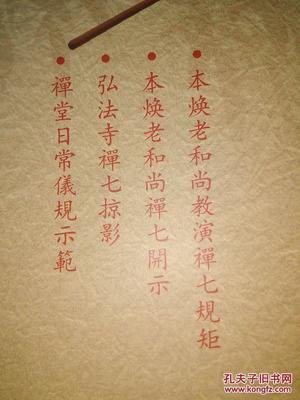 • 本煥老和尚教演禪七規矩
• 本煥老和尚禪七開示
• 弘法寺禪七掠影
• 禪堂日常儀規示範
孔夫子旧书网